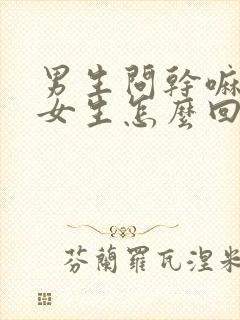 男生問幹嘛
女生怎麼回
芬蘭羅瓦涅米